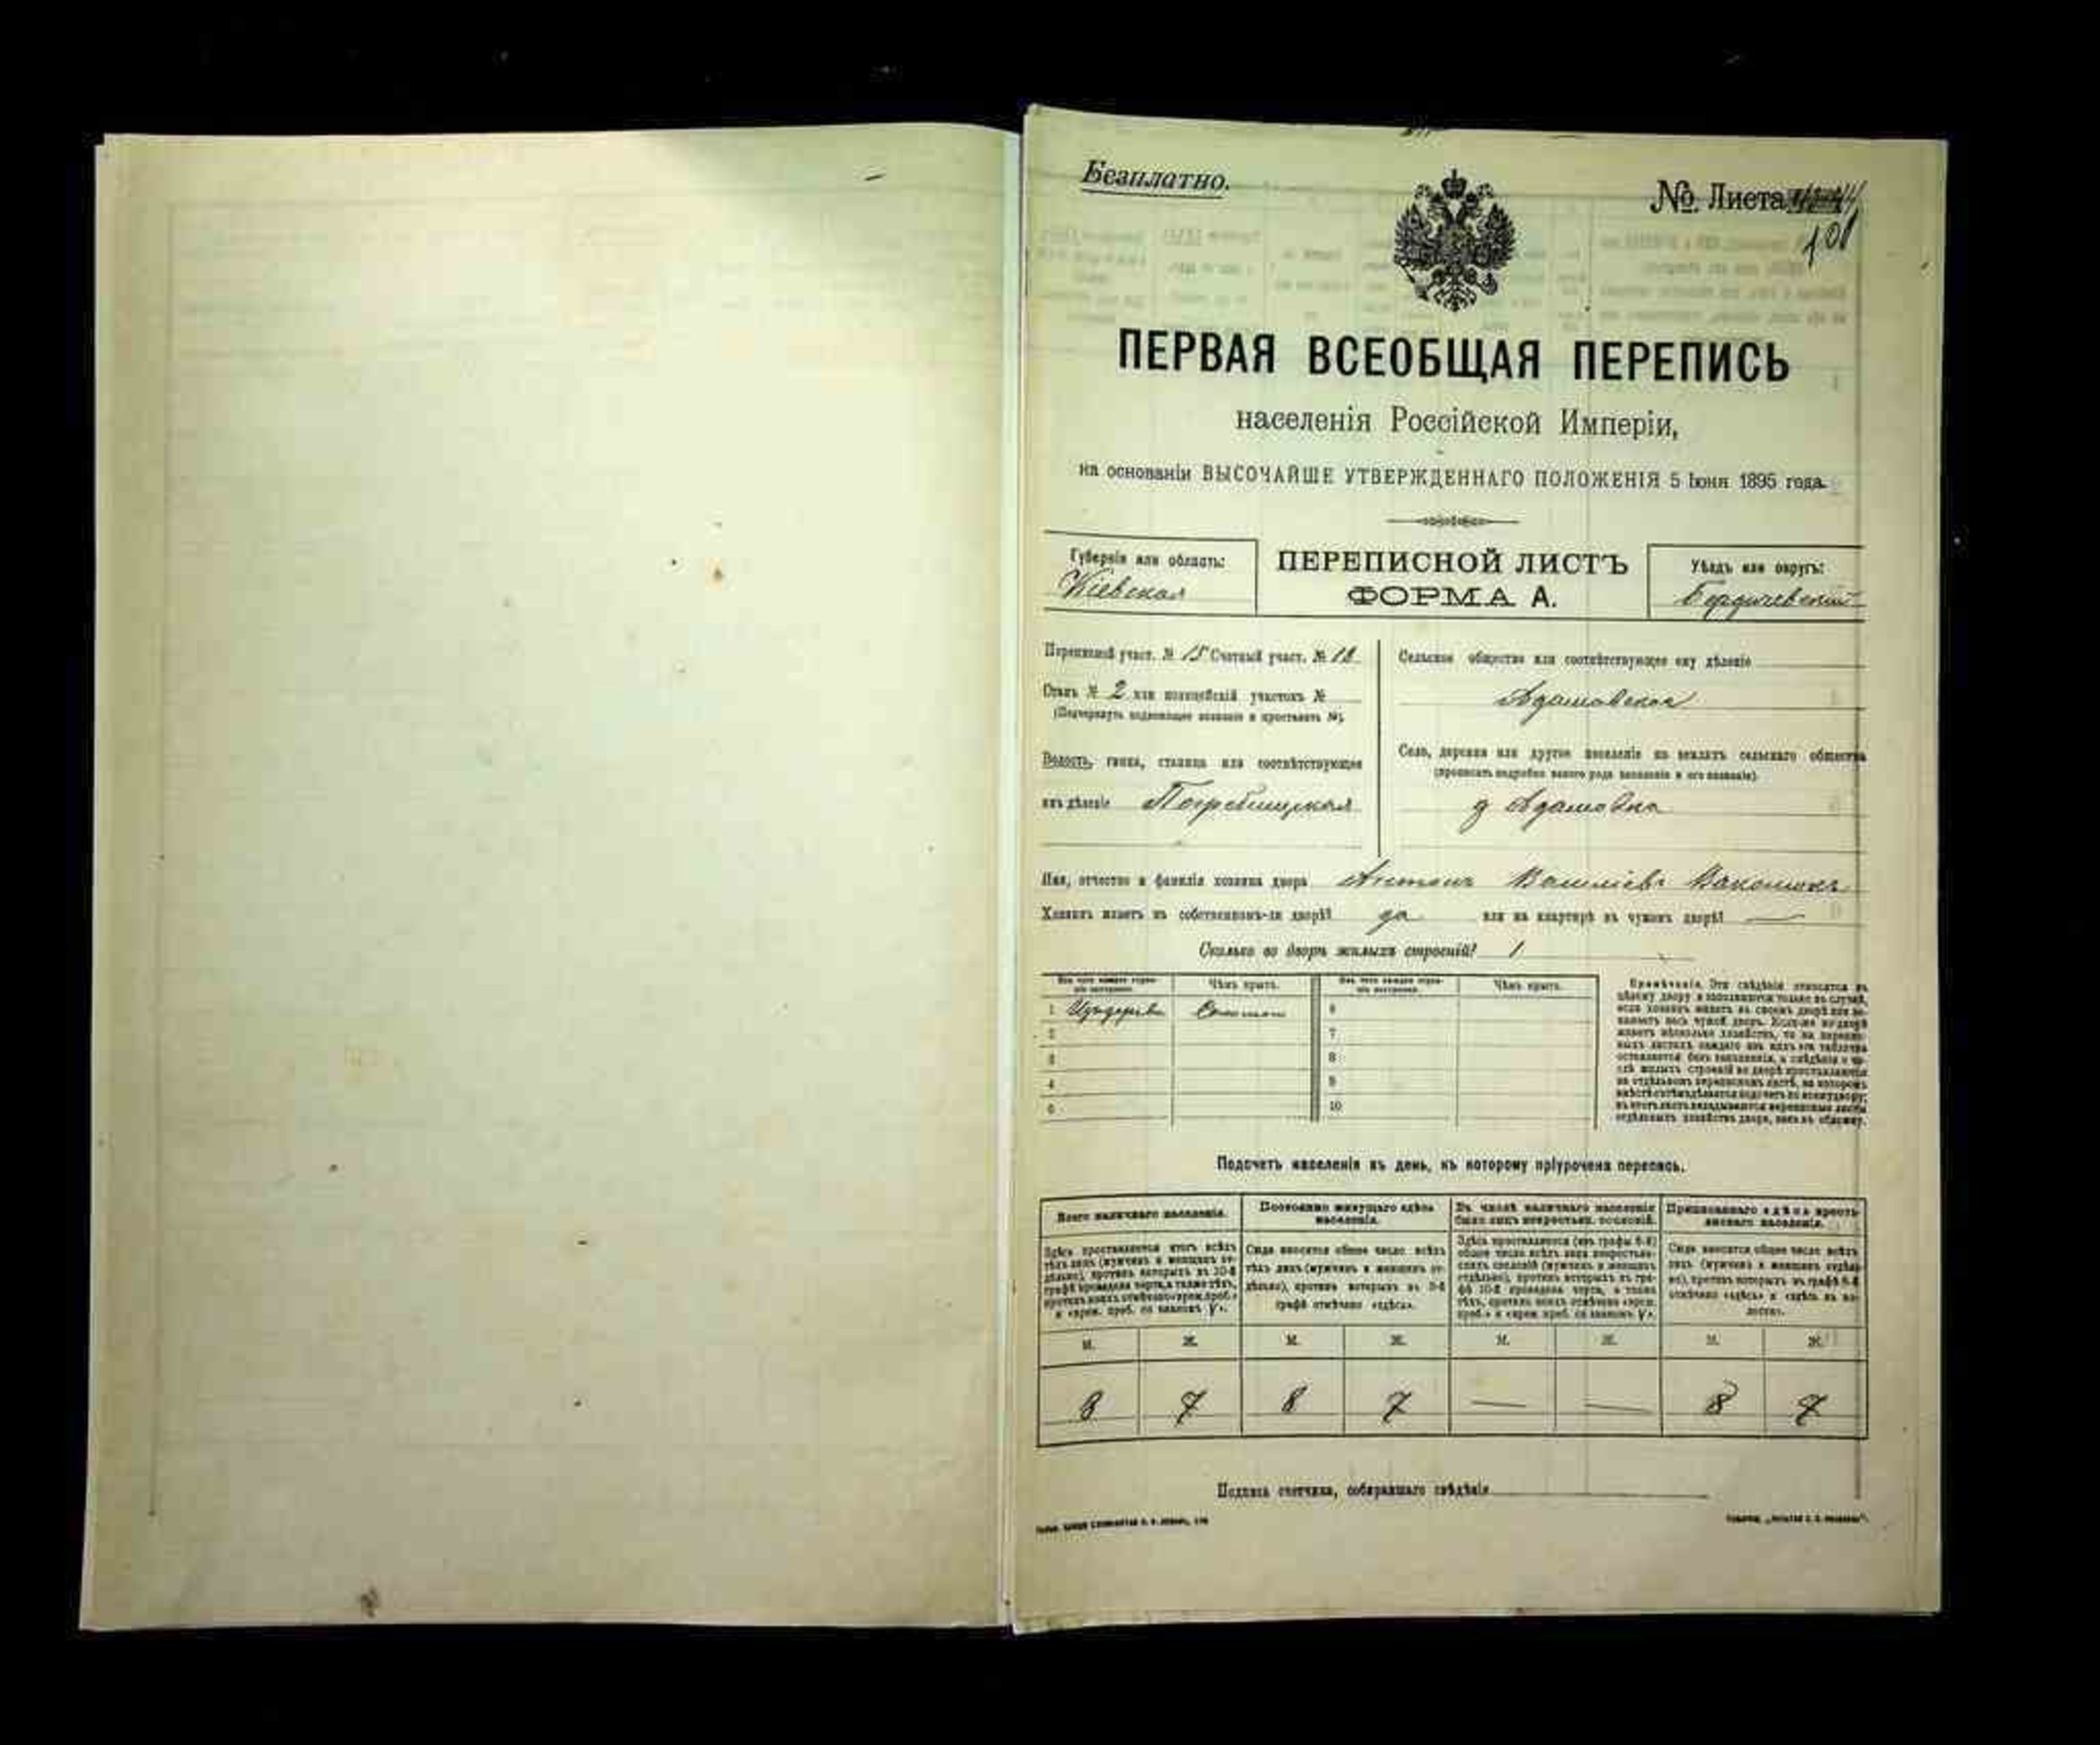 Безплатно.
№ Листа
101
ПЕРВАЯ ВСЕОБЩАЯ ПЕРЕПИСЬ
населенія Россійской Имперіи,
на основаніи ВЫСОЧАЙШЕ УТВЕРЖДЕННАГО ПОЛОЖЕНІЯ 5 Іюня 1895 года.
Губернія или область:
Кіевская
ПЕРЕПИСНОЙ ЛИСТЪ
ФОРМА А.
Уѣздъ или округъ:
Бердичевскій
Переписной участ. № 15 Счетный участ. № 18
Станъ № 2 или полицейскій участокъ №
(Подчеркнуть подлежащее названіе и проставить №).
Волость, гмина, станица или соотвѣтствующее
имъ дѣленіе Погребищская
Сельское общество или соотвѣтствующее ему дѣленіе
Адамовское
Село, деревня или другое поселеніе на земляхъ сельскаго общества
(прописать подробно какого рода поселеніе и его названіе).
д Адамовка
Имя, отчество и фамилія хозяина двора Антонъ Василіевъ
Хозяинъ живетъ въ собственномъ-ли дворѣ? да или на квартирѣ въ чужомъ дворѣ? —
Сколько во дворѣ жилыхъ строеній? 1
Изъ чего каждое строеніе построено.
Чѣмъ крыто.
Изъ чего каждое строеніе построено.
Чѣмъ крыто.
1 Соломою 6
2 7
3 8
4 9
5 10
Примѣчаніе. Эти свѣдѣнія относятся къ
цѣлому двору и заполняются только въ случаѣ,
если хозяинъ живетъ въ своемъ дворѣ или занимаетъ весь чужой дворъ. Если-же во дворѣ
живетъ нѣсколько хозяйствъ, то на переписныхъ листахъ каждаго изъ нихъ эта табличка
оставляется безъ заполненія, а свѣдѣнія о числѣ жилыхъ строеній во дворѣ проставляются
на отдѣльномъ переписномъ листѣ, на которомъ
Подсчетъ населенія въ день, къ которому пріурочена перепись.
Всего наличнаго населенія.
Здѣсь проставляется итогъ всѣхъ
тѣхъ лицъ (мужчинъ и женщинъ отдѣльно), противъ которыхъ въ 10-й
графѣ проведена черта, а также тѣхъ,
противъ коихъ отмѣчено «врем. проб.»
и «врем. проб. со знакомъ V».
Постоянно живущаго здѣсь
населенія.
Сюда вносится общее число всѣхъ
тѣхъ лицъ (мужчинъ и женщинъ отдѣльно), противъ которыхъ въ 9-й
графѣ отмѣчено «здѣсь».
Въ числѣ наличнаго населенія
было лицъ некрестьян. сословій.
Здѣсь проставляется (изъ графы 6-й)
общее число всѣхъ лицъ некрестьянскихъ сословій (мужчинъ и женщинъ
отдѣльно), противъ которыхъ въ графѣ 10-й проведена черта, а также
тѣхъ, противъ коихъ отмѣчено «врем.
проб.» и «врем. проб. со знакомъ V».
Приписаннаго здѣсь крестьянскаго населенія.
Сюда вносится общее число всѣхъ
лицъ (мужчинъ и женщинъ отдѣльно), противъ которыхъ въ графѣ 8-й
отмѣчено «здѣсь» и «здѣсь въ волости».
М. Ж. М. Ж. М. Ж. М. Ж.
8 7 8 7 — — 8 7
Подпись счетчика, собиравшаго свѣдѣнія